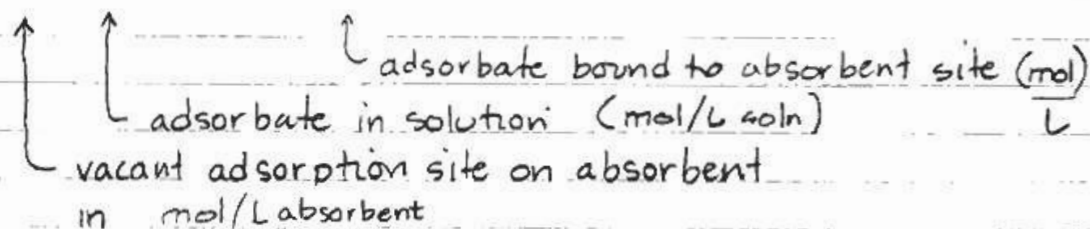 adsorbate bound to absorbent site (mol)
L
adsorbate in solution (mol/L soln)
vacant adsorption site on absorbent
in mol/L absorbent